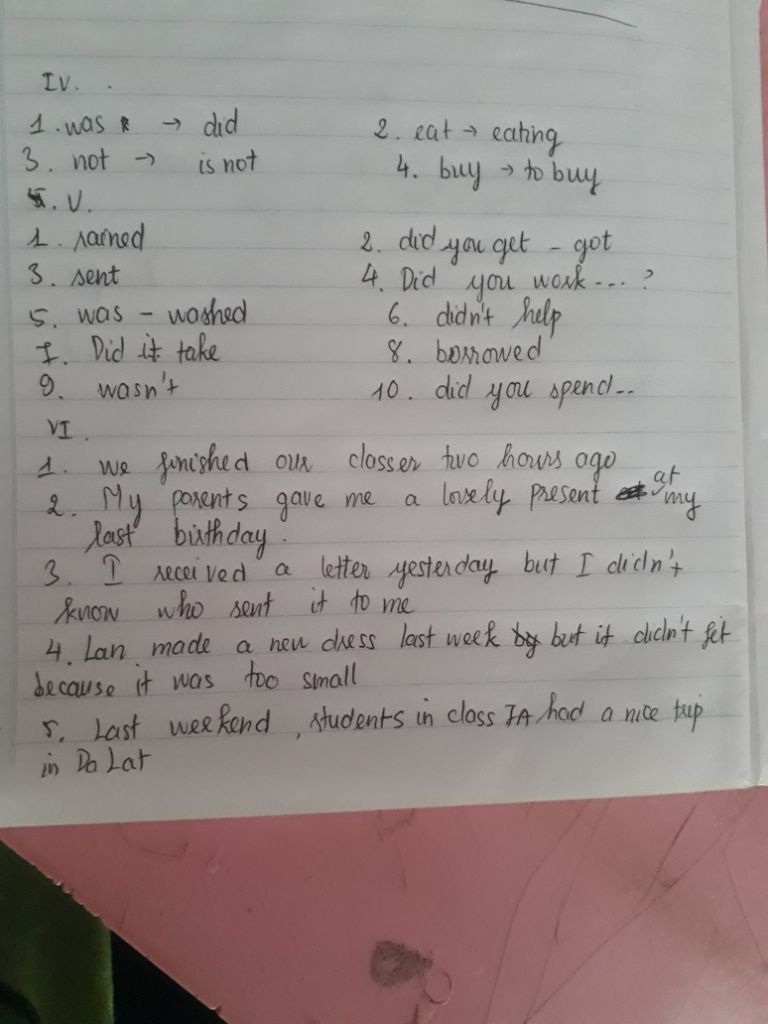 IV.
1. was → did 2. eat → eating
3. not → is not 4. buy → to buy
V.
1. rained 2. did you get - got
3. sent 4. Did you work ... ?
5. was - washed 6. didn't help
7. Did it take 8. borrowed
9. wasn't 10. did you spend..
VI.
1. We finished our classer two hours ago
2. My parents gave me a lovely present at my
last birthday.
3. I received a letter yesterday but I didn't
know who sent it to me
4. Lan made a new dress last week but it didn't fit
because it was too small
5. Last weekend, students in class 7A had a nice trip
in Da Lat